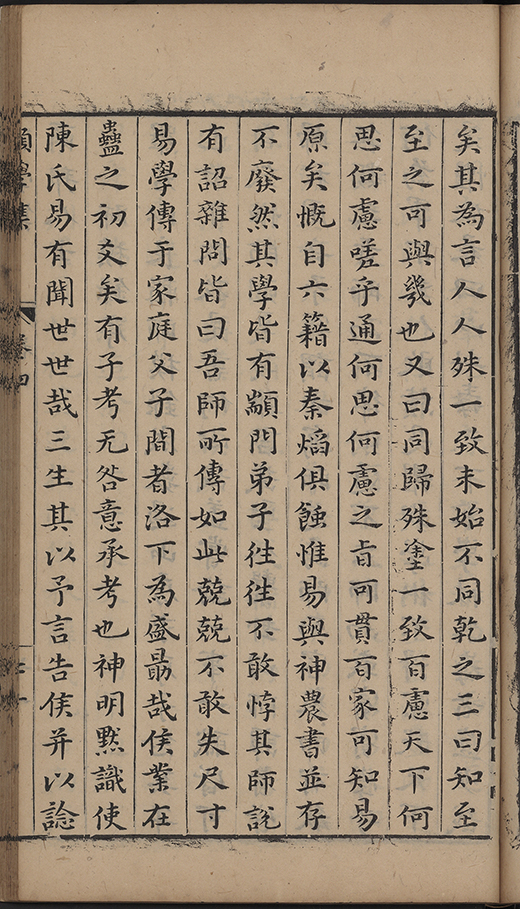 矣其為言人人殊一致未始不同乾之三曰知至
至之可與幾也又曰同歸殊塗一致百慮天下何
思何慮嗟乎通何思何慮之旨可貫百家可知易
原矣慨自六籍以秦焰俱蝕惟易與神農書並存
不廢然其學皆有顓門弟子徃徃不敢悖其師説
有詔雜問皆曰吾師所傳如此兢兢不敢失尺寸
易學傳于家庭父子間者洛下為盛勗哉侯業在
蠱之初爻矣有子考无咎意承考也神明黙識使
陳氏易有聞世世哉三生其以予言告侯并以諗
學集
卷四